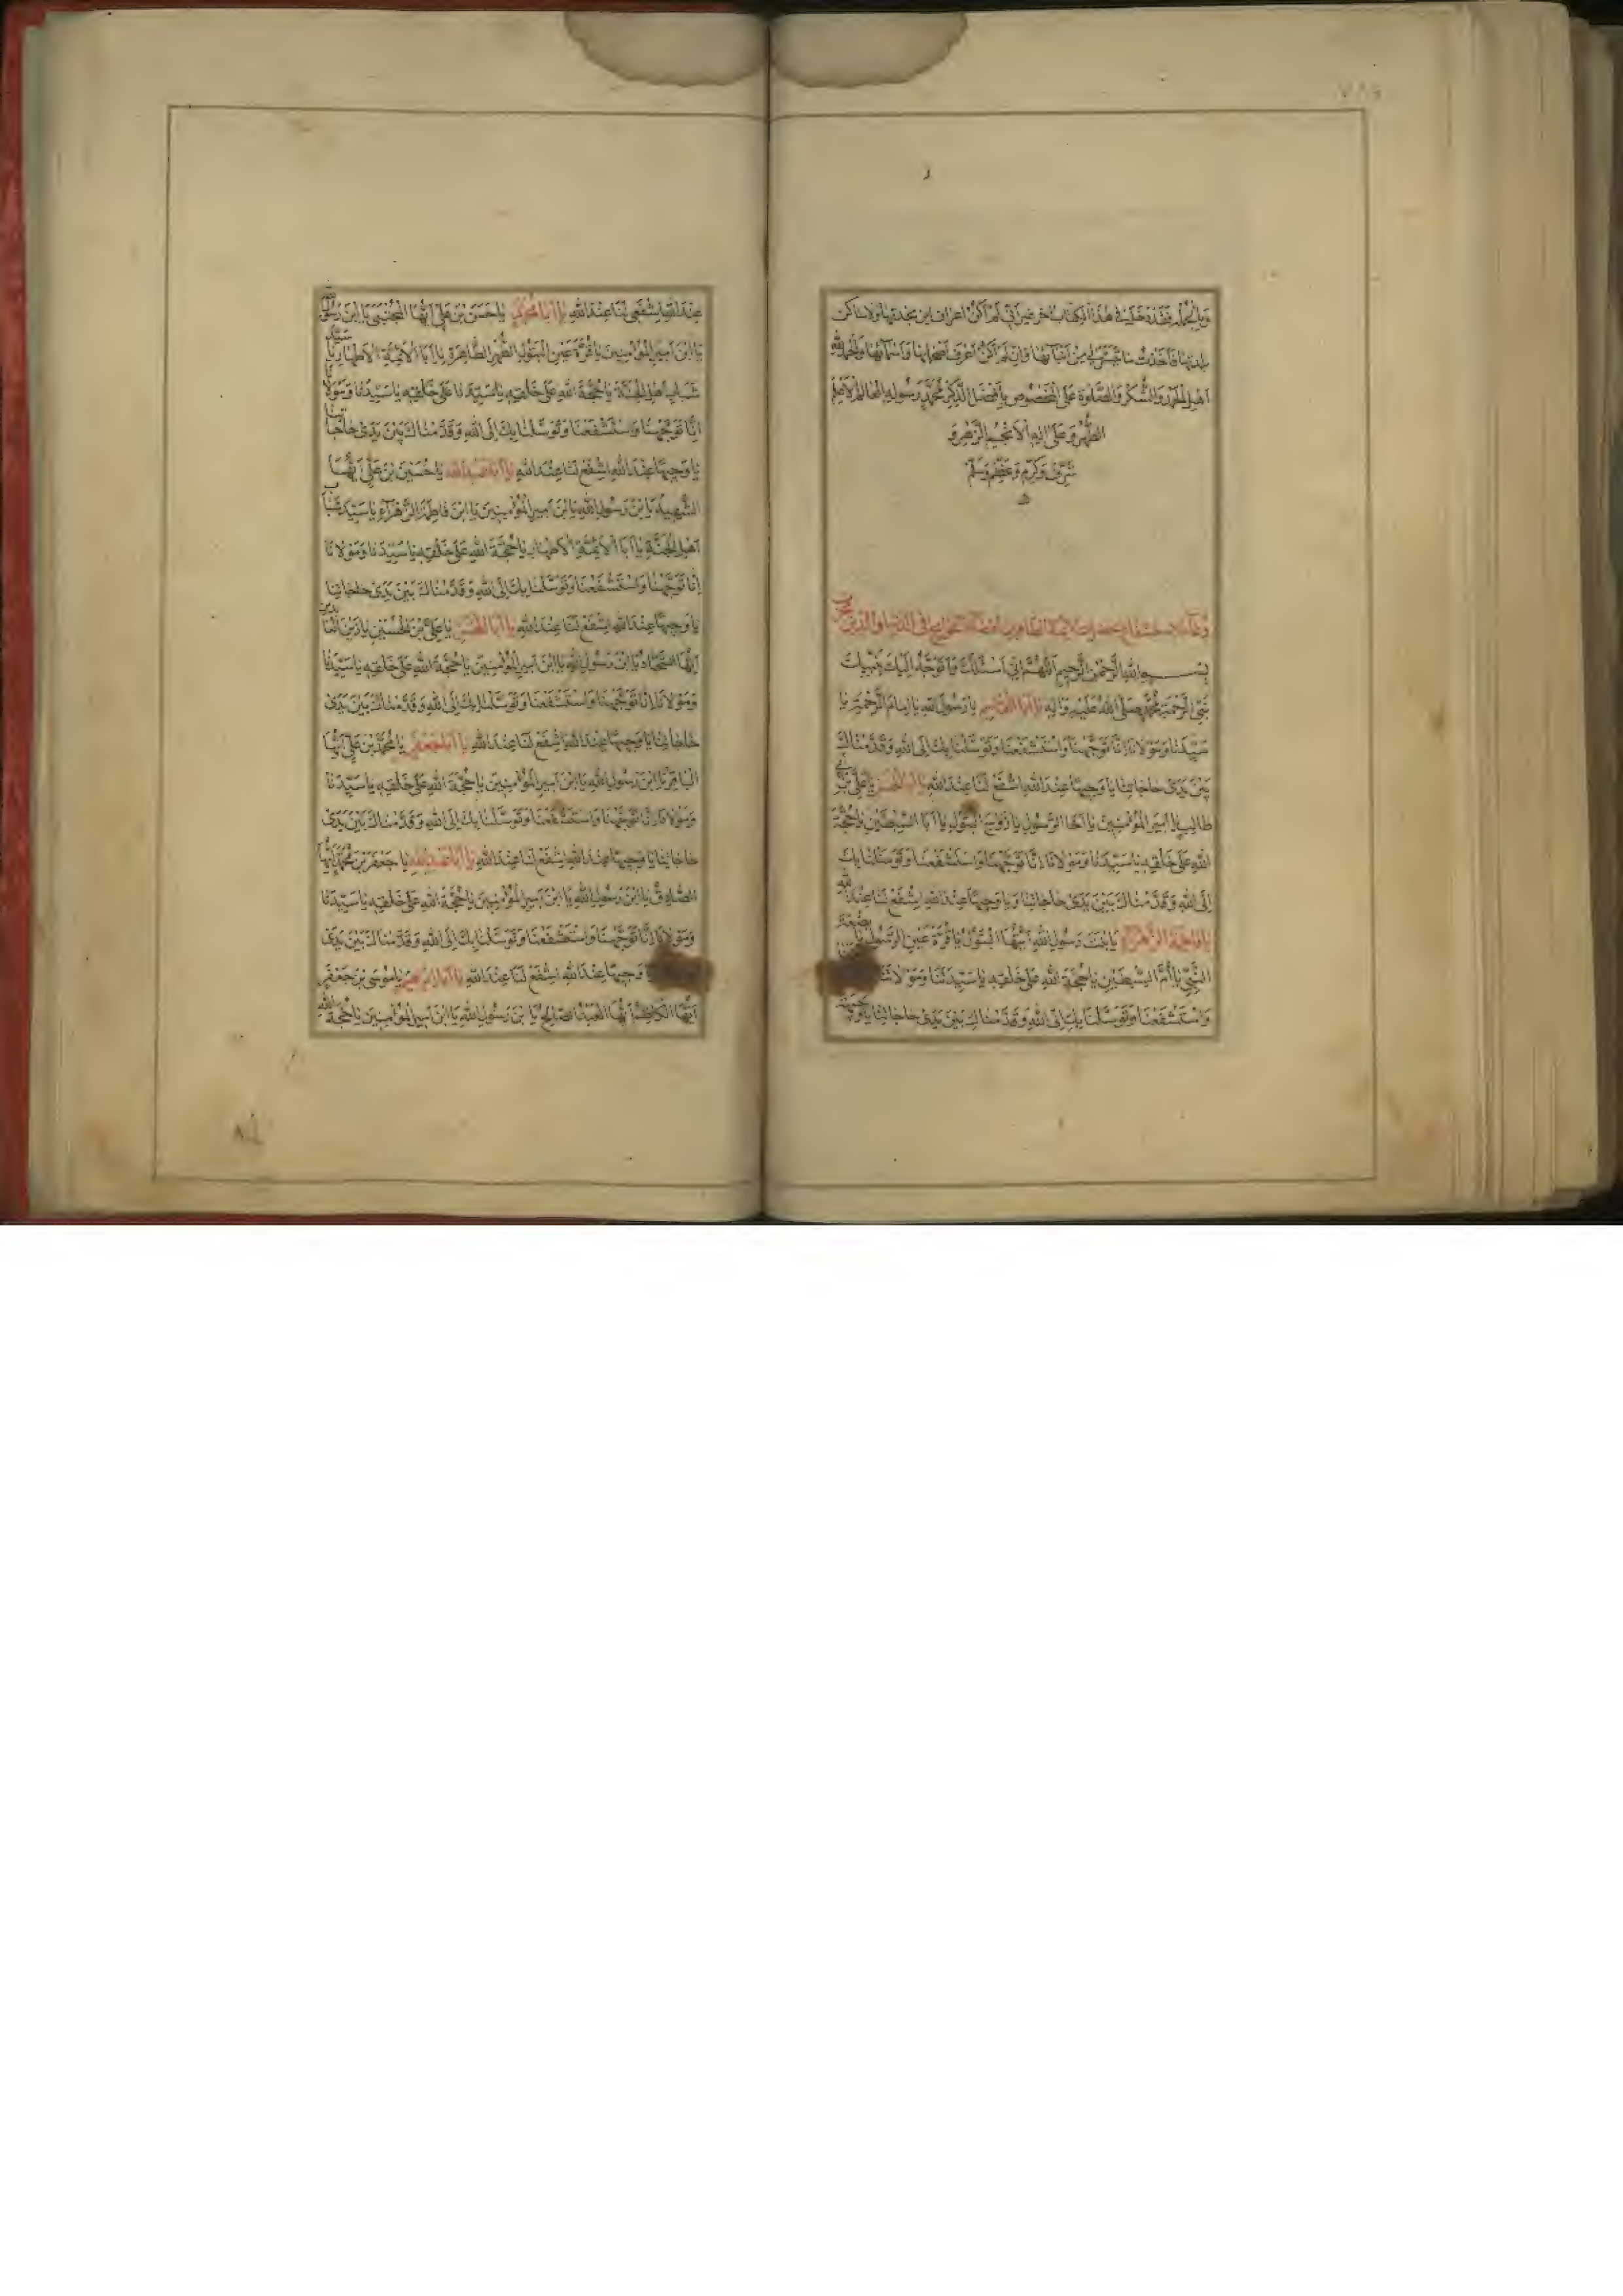 الطُّهْرِ وَعَلَى آلِهِ الْاَنْجُمِ الزُّهْرِ وَ
شَرَّفَ وَكَرَّمَ وَعَظَّمَ وَسَلَّمَ
بِسْمِ اللهِ الرَّحْمٰنِ الرَّحِيمِ اَللّٰهُمَّ اِنِّي اَسْئَلُكَ وَاَتَوَجَّهُ اِلَيْكَ بِنَبِيِّكَ
نَبِيِّ الرَّحْمَةِ مُحَمَّدٍ صَلَّى اللهُ عَلَيْهِ وَآلِهِ يَا اَبَا الْقَاسِمِ يَا رَسُولَ اللهِ يَا اِمَامَ الرَّحْمَةِ يَا
سَيِّدَنَا وَمَوْلَانَا اِنَّا تَوَجَّهْنَا وَاسْتَشْفَعْنَا وَتَوَسَّلْنَا بِكَ اِلَى اللهِ وَقَدَّمْنَاكَ
بَيْنَ يَدَيْ حَاجَاتِنَا يَا وَجِيهًا عِنْدَ اللهِ اشْفَعْ لَنَا عِنْدَ اللهِ يَا اَبَا الْحَسَنِ يَا عَلِيَّ بْنَ اَبِي
طَالِبٍ يَا اَمِيرَ الْمُؤْمِنِينَ يَا اَخَا الرَّسُولِ يَا زَوْجَ الْبَتُولِ يَا اَبَا السِّبْطَيْنِ يَا حُجَّةَ
اللهِ عَلَى خَلْقِهِ يَا سَيِّدَنَا وَمَوْلَانَا اِنَّا تَوَجَّهْنَا وَاسْتَشْفَعْنَا وَتَوَسَّلْنَا بِكَ
اِلَى اللهِ وَقَدَّمْنَاكَ بَيْنَ يَدَيْ حَاجَاتِنَا وَيَا وَجِيهًا عِنْدَ اللهِ اِشْفَعْ لَنَا عِنْدَ اللهِ
يَا فَاطِمَةَ الزَّهْرَاءِ يَا بِنْتَ رَسُولِ اللهِ اَيَّتُهَا الْبَتُولُ يَا قُرَّةَ عَيْنِ الرَّسُولِ يَا بَضْعَةَ
النَّبِيِّ يَا اُمَّ السِّبْطَيْنِ يَا حُجَّةَ اللهِ عَلَى خَلْقِهِ يَا سَيِّدَتَنَا وَمَوْلَاتَنَا
وَاسْتَشْفَعْنَا وَتَوَسَّلْنَا بِكِ اِلَى اللهِ وَقَدَّمْنَاكِ بَيْنَ يَدَيْ حَاجَاتِنَا يَا وَجِيهَةً
عِنْدَ اللهِ اِشْفَعِي لَنَا عِنْدَ اللهِ يَا اَبَا مُحَمَّدٍ يَا حَسَنَ بْنَ عَلِيٍّ اَيُّهَا الْمُجْتَبَى يَا ابْنَ رَسُولِ اللهِ
يَا ابْنَ اَمِيرِ الْمُؤْمِنِينَ يَا قُرَّةَ عَيْنِ الْبَتُولِ الطُّهْرِ الطَّاهِرَةِ يَا اَبَا الْاَئِمَّةِ الْاَطْهَارِ يَا سَيِّدَ
شَبَابِ اَهْلِ الْجَنَّةِ يَا حُجَّةَ اللهِ عَلَى خَلْقِهِ يَا سَيِّدَنَا وَمَوْلَانَا
اِنَّا تَوَجَّهْنَا وَاسْتَشْفَعْنَا وَتَوَسَّلْنَا بِكَ اِلَى اللهِ وَقَدَّمْنَاكَ بَيْنَ يَدَيْ حَاجَاتِنَا
يَا وَجِيهًا عِنْدَ اللهِ اِشْفَعْ لَنَا عِنْدَ اللهِ يَا اَبَا عَبْدِ اللهِ يَا حُسَيْنَ بْنَ عَلِيٍّ اَيُّهَا
الشَّهِيدُ يَا ابْنَ رَسُولِ اللهِ يَا ابْنَ اَمِيرِ الْمُؤْمِنِينَ يَا ابْنَ فَاطِمَةَ الزَّهْرَاءِ يَا سَيِّدَ شَبَابِ
اَهْلِ الْجَنَّةِ يَا اَبَا الْاَئِمَّةِ الْاَطْهَارِ يَا حُجَّةَ اللهِ عَلَى خَلْقِهِ يَا سَيِّدَنَا وَمَوْلَانَا
اِنَّا تَوَجَّهْنَا وَاسْتَشْفَعْنَا وَتَوَسَّلْنَا بِكَ اِلَى اللهِ وَقَدَّمْنَاكَ بَيْنَ يَدَيْ حَاجَاتِنَا
يَا وَجِيهًا عِنْدَ اللهِ اِشْفَعْ لَنَا عِنْدَ اللهِ يَا اَبَا الْحَسَنِ يَا عَلِيَّ بْنَ الْحُسَيْنِ يَا زَيْنَ الْعَابِدِينَ
اَيُّهَا السَّجَّادُ يَا ابْنَ رَسُولِ اللهِ يَا ابْنَ اَمِيرِ الْمُؤْمِنِينَ يَا حُجَّةَ اللهِ عَلَى خَلْقِهِ يَا سَيِّدَنَا
وَمَوْلَانَا اِنَّا تَوَجَّهْنَا وَاسْتَشْفَعْنَا وَتَوَسَّلْنَا بِكَ اِلَى اللهِ وَقَدَّمْنَاكَ بَيْنَ يَدَيْ
حَاجَاتِنَا يَا وَجِيهًا عِنْدَ اللهِ اِشْفَعْ لَنَا عِنْدَ اللهِ يَا اَبَا جَعْفَرٍ يَا مُحَمَّدَ بْنَ عَلِيٍّ اَيُّهَا
الْبَاقِرُ يَا ابْنَ رَسُولِ اللهِ يَا ابْنَ اَمِيرِ الْمُؤْمِنِينَ يَا حُجَّةَ اللهِ عَلَى خَلْقِهِ يَا سَيِّدَنَا
وَمَوْلَانَا اِنَّا تَوَجَّهْنَا وَاسْتَشْفَعْنَا وَتَوَسَّلْنَا بِكَ اِلَى اللهِ وَقَدَّمْنَاكَ بَيْنَ يَدَيْ
حَاجَاتِنَا يَا وَجِيهًا عِنْدَ اللهِ اِشْفَعْ لَنَا عِنْدَ اللهِ يَا اَبَا عَبْدِ اللهِ يَا جَعْفَرَ بْنَ مُحَمَّدٍ اَيُّهَا
الصَّادِقُ يَا ابْنَ رَسُولِ اللهِ يَا ابْنَ اَمِيرِ الْمُؤْمِنِينَ يَا حُجَّةَ اللهِ عَلَى خَلْقِهِ يَا سَيِّدَنَا
وَمَوْلَانَا اِنَّا تَوَجَّهْنَا وَاسْتَشْفَعْنَا وَتَوَسَّلْنَا بِكَ اِلَى اللهِ وَقَدَّمْنَاكَ بَيْنَ يَدَيْ
يَا وَجِيهًا عِنْدَ اللهِ اِشْفَعْ لَنَا عِنْدَ اللهِ يَا اَبَا اِبْرٰهِيمَ يَا مُوسَى بْنَ جَعْفَرٍ
اَيُّهَا الْكَاظِمُ اَيُّهَا الْعَبْدُ الصَّالِحُ يَا ابْنَ رَسُولِ اللهِ يَا ابْنَ اَمِيرِ الْمُؤْمِنِينَ يَا حُجَّةَ اللهِ